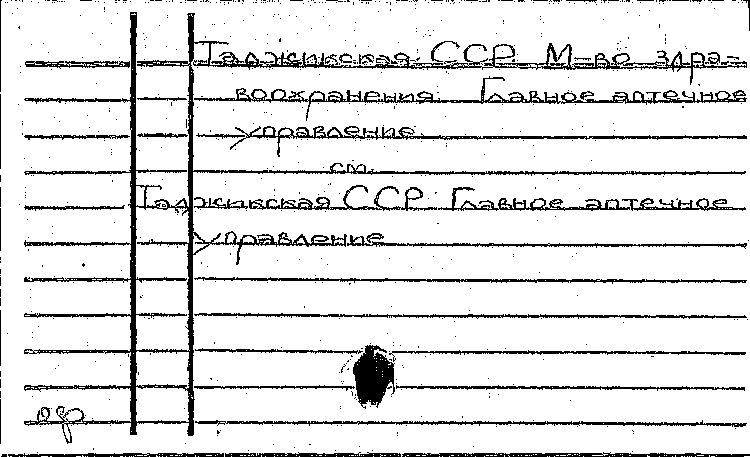 Таджикская ССР. М-во здра-
воохранения. Главное аптечное
управление.
см.
Таджикская ССР. Главное аптечное
управление